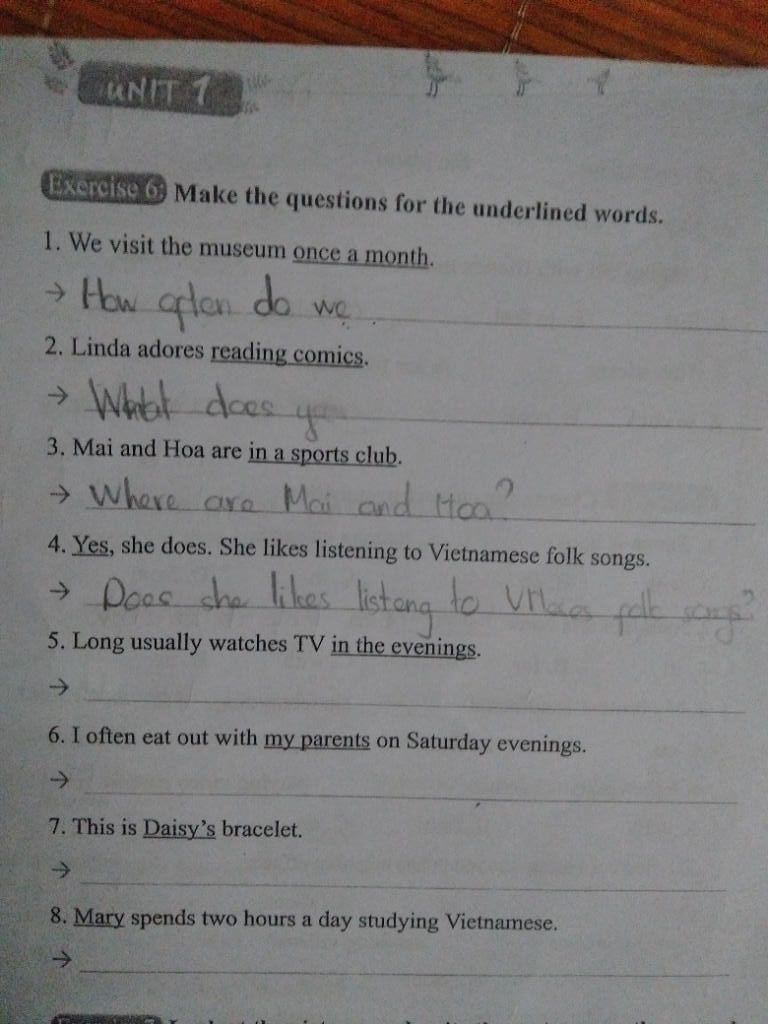 UNIT 1
Exercise 6: Make the questions for the underlined words.
1. We visit the museum once a month.
→ How often do we
2. Linda adores reading comics.
→ What does
3. Mai and Hoa are in a sports club.
→ Where are Mai and Hoa?
4. Yes, she does. She likes listening to Vietnamese folk songs.
→ Does she likes listeng to folk songs?
5. Long usually watches TV in the evenings.
→
6. I often eat out with my parents on Saturday evenings.
→
7. This is Daisy's bracelet.
→
8. Mary spends two hours a day studying Vietnamese.
→